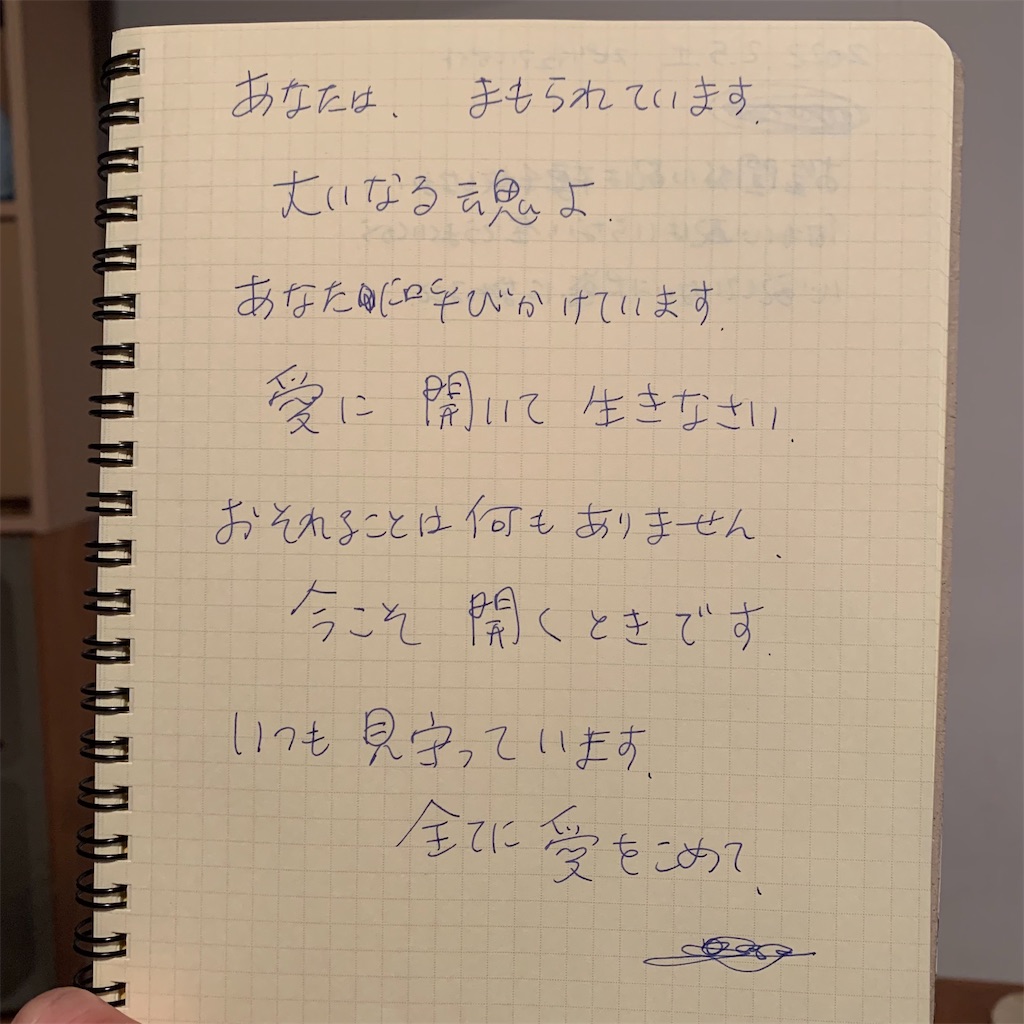 あなたは、 まもられています.
大いなる魂よ.
あなたに呼びかけています.
愛に 開いて 生きなさい.
おそれることは何もありません.
今こそ 開くときです.
いつも見守っています.
全てに愛をこめて.